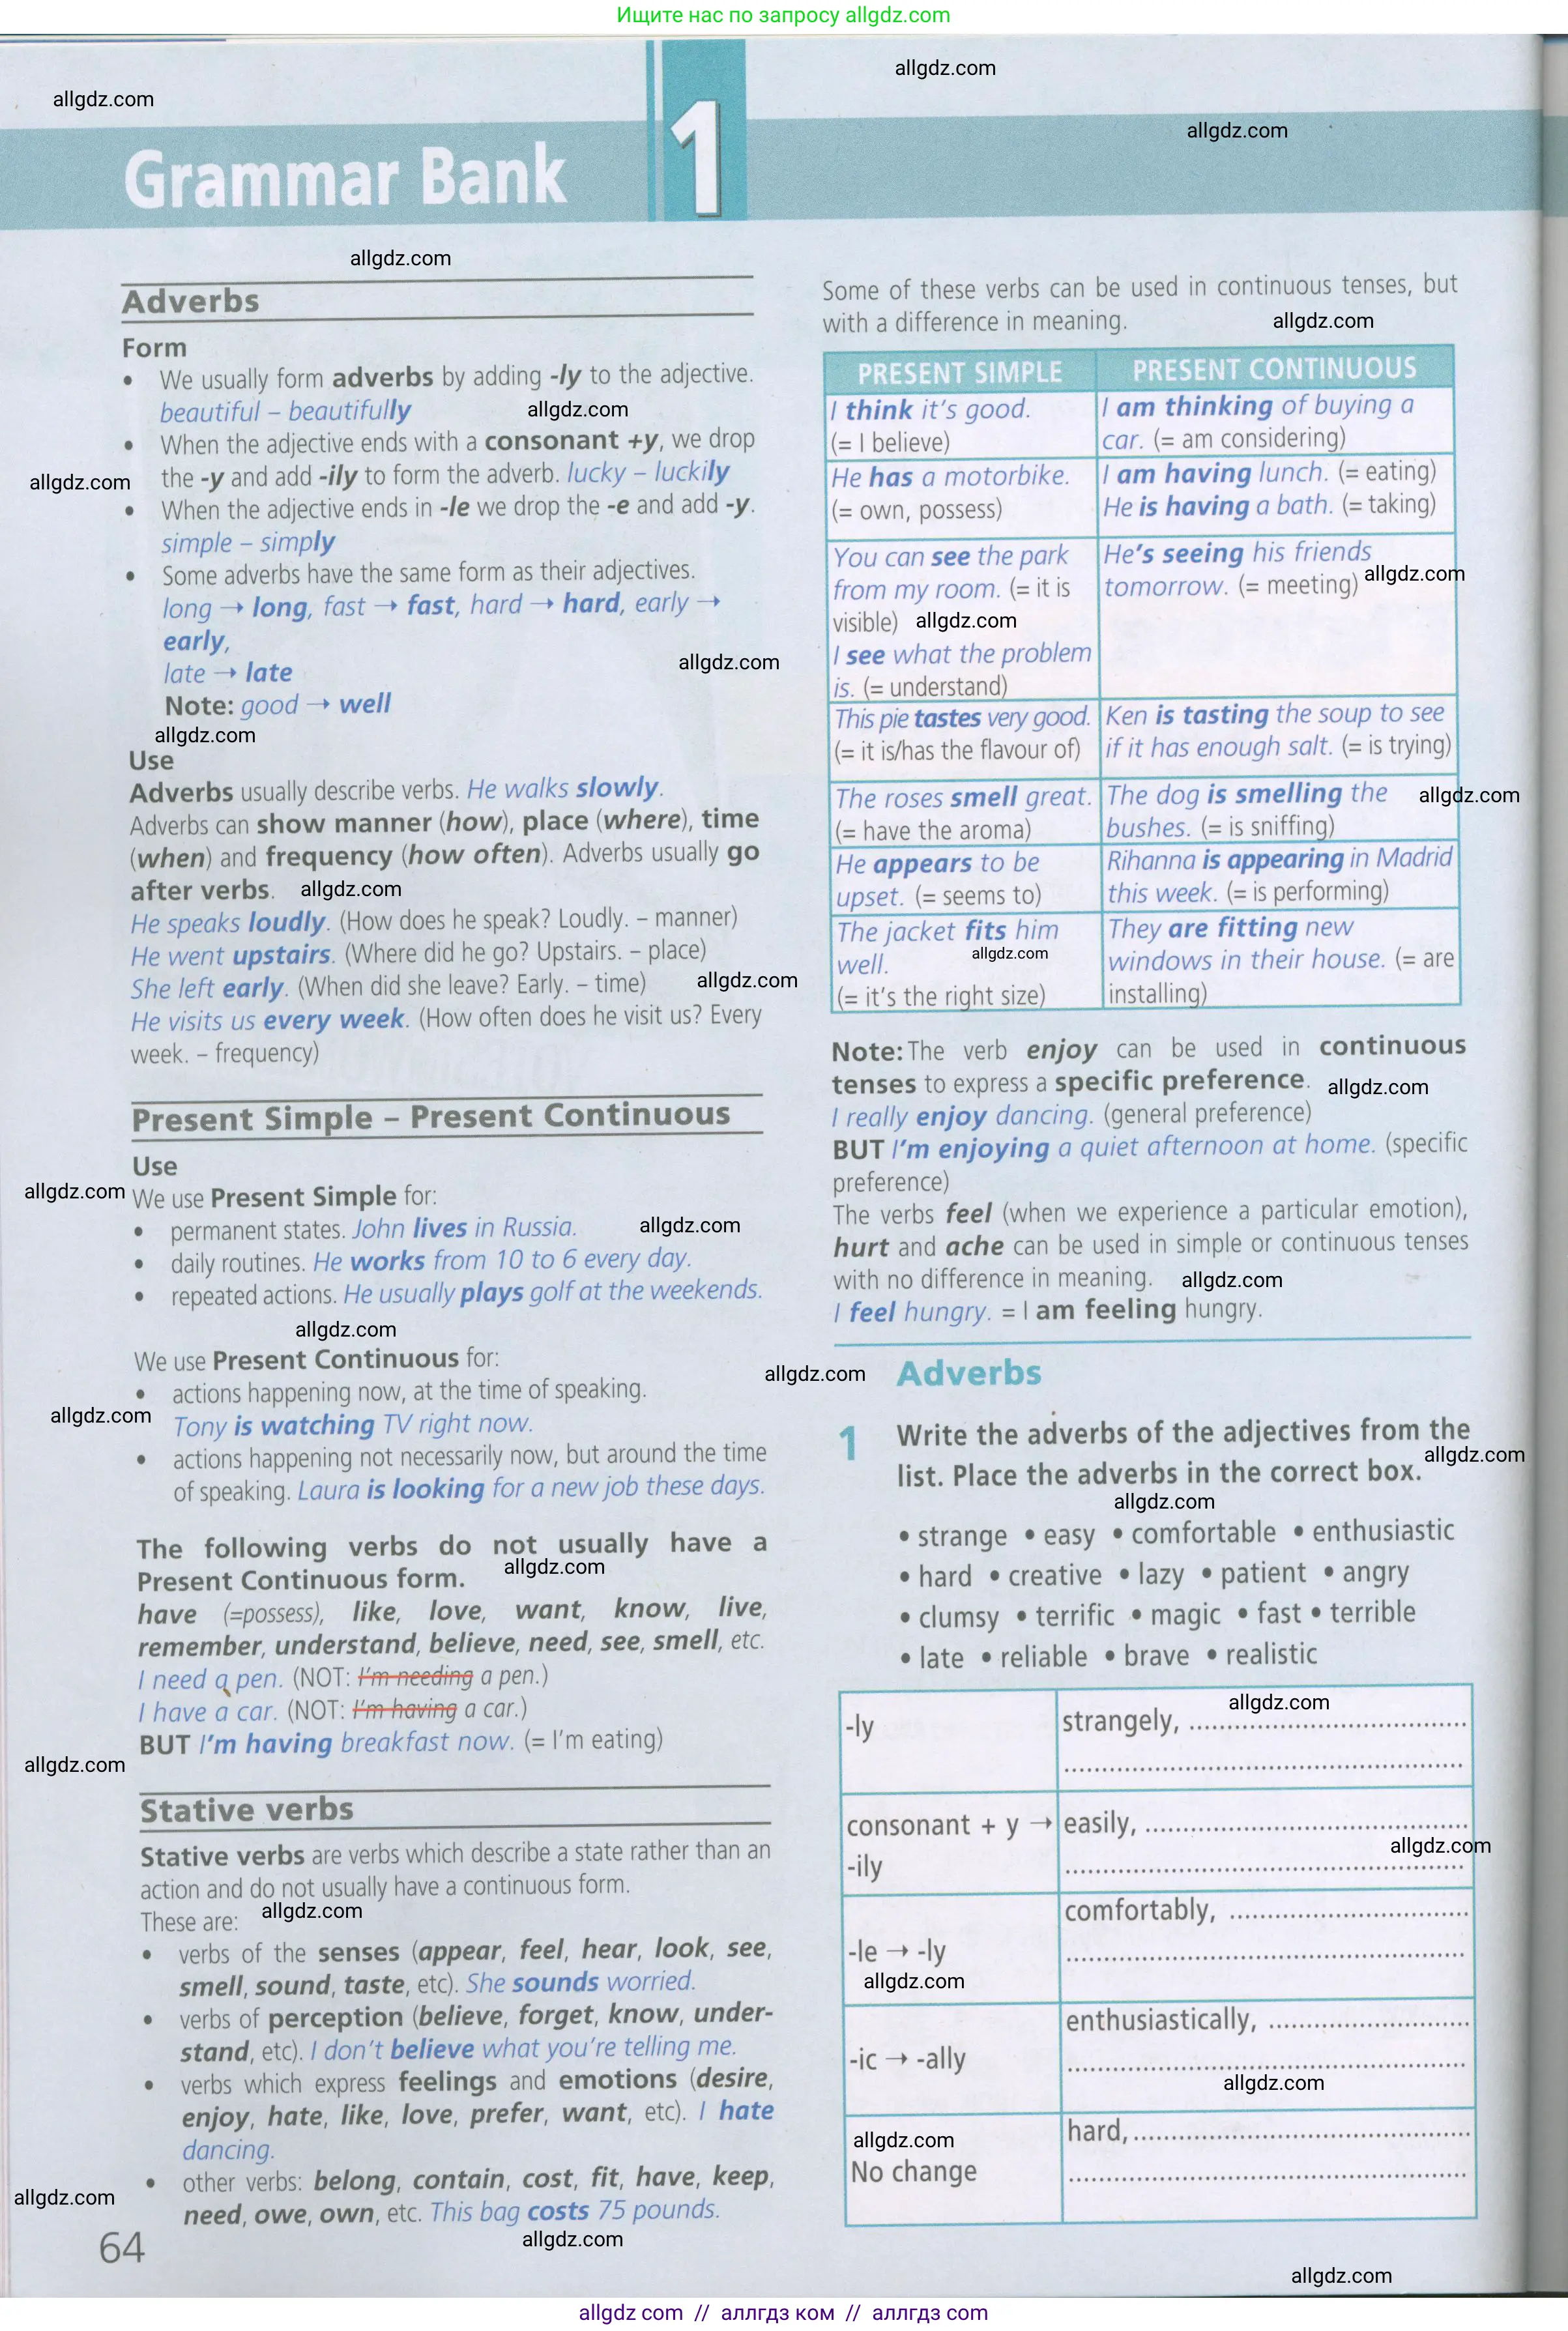 Ищите нас по запросу allgdz.com
allgdz.com
allgdz.com
allgdz.com
Grammar Bank 1
allgdz.com
Adverbs
Form
• We usually form adverbs by adding -ly to the adjective.
beautiful – beautifully
allgdz.com
• When the adjective ends with a consonant +y, we drop
the -y and add -ily to form the adverb. lucky – luckily
allgdz.com
• When the adjective ends in -le we drop the -e and add -y.
simple – simply
• Some adverbs have the same form as their adjectives.
long → long, fast → fast, hard → hard, early →
early,
late → late
allgdz.com
Note: good → well
allgdz.com
Use
Adverbs usually describe verbs. He walks slowly.
Adverbs can show manner (how), place (where), time
(when) and frequency (how often). Adverbs usually go
after verbs.
allgdz.com
He speaks loudly. (How does he speak? Loudly. – manner)
He went upstairs. (Where did he go? Upstairs. – place)
She left early. (When did she leave? Early. – time)
allgdz.com
He visits us every week. (How often does he visit us? Every
week. – frequency)
Present Simple – Present Continuous
Use
allgdz.com
We use Present Simple for:
• permanent states. John lives in Russia.
allgdz.com
• daily routines. He works from 10 to 6 every day.
• repeated actions. He usually plays golf at the weekends.
allgdz.com
We use Present Continuous for:
• actions happening now, at the time of speaking.
allgdz.com
Tony is watching TV right now.
• actions happening not necessarily now, but around the time
of speaking. Laura is looking for a new job these days.
The following verbs do not usually have a
Present Continuous form.
allgdz.com
have (=possess), like, love, want, know, live,
remember, understand, believe, need, see, smell, etc.
I need a pen. (NOT: I'm needing a pen.)
I have a car. (NOT: I'm having a car.)
BUT I'm having breakfast now. (= I'm eating)
allgdz.com
Stative verbs
Stative verbs are verbs which describe a state rather than an
action and do not usually have a continuous form.
These are:
allgdz.com
• verbs of the senses (appear, feel, hear, look, see,
smell, sound, taste, etc). She sounds worried.
• verbs of perception (believe, forget, know, under-
stand, etc). I don't believe what you're telling me.
• verbs which express feelings and emotions (desire,
enjoy, hate, like, love, prefer, want, etc). I hate
dancing.
• other verbs: belong, contain, cost, fit, have, keep,
allgdz.com
need, owe, own, etc. This bag costs 75 pounds.
64
allgdz.com
Some of these verbs can be used in continuous tenses, but
with a difference in meaning.
allgdz.com
PRESENT SIMPLE
PRESENT CONTINUOUS
I think it's good.
(= I believe)
I am thinking of buying a
car. (= am considering)
He has a motorbike.
(= own, possess)
I am having lunch. (= eating)
He is having a bath. (= taking)
You can see the park
from my room. (= it is
visible)
allgdz.com
I see what the problem
is. (= understand)
He's seeing his friends
tomorrow. (= meeting)
allgdz.com
This pie tastes very good.
(= it is/has the flavour of)
Ken is tasting the soup to see
if it has enough salt. (= is trying)
The roses smell great.
(= have the aroma)
The dog is smelling the
bushes. (= is sniffing)
allgdz.com
He appears to be
upset. (= seems to)
Rihanna is appearing in Madrid
this week. (= is performing)
The jacket fits him
well.
allgdz.com
(= it's the right size)
They are fitting new
windows in their house. (= are
installing)
Note: The verb enjoy can be used in continuous
tenses to express a specific preference.
allgdz.com
I really enjoy dancing. (general preference)
BUT I'm enjoying a quiet afternoon at home. (specific
preference)
The verbs feel (when we experience a particular emotion),
hurt and ache can be used in simple or continuous tenses
with no difference in meaning.
allgdz.com
I feel hungry. = I am feeling hungry.
allgdz.com
Adverbs
1 Write the adverbs of the adjectives from the
list. Place the adverbs in the correct box.
allgdz.com
allgdz.com
• strange • easy • comfortable • enthusiastic
• hard • creative • lazy • patient • angry
• clumsy • terrific • magic • fast • terrible
• late • reliable • brave • realistic
allgdz.com
-ly
strangely, ....................................
....................................................
consonant + y →
-ily
easily, ..........................................
allgdz.com
....................................................
-le → -ly
allgdz.com
comfortably, ...............................
....................................................
-ic → -ally
enthusiastically, ..........................
....................................................
allgdz.com
allgdz.com
No change
hard, ............................................
....................................................
allgdz.com
allgdz com // аллгдз ком // аллгдз com